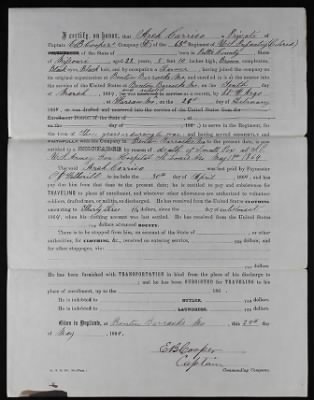 I certify, on honor, that Arch Corriss a Private of
Captain E B Cooper's Company (H) of the 65th Regiment of
of the United States, born in Pettis County, State of
Missouri, aged 22 years; 5 feet 10 inches high; Brown complexion,
Black eyes, Black hair, and by occupation a Farmer, having joined the company on
its original organization at Benton Barracks Mo, and enrolled in it at the muster into
the service of the United States at Benton Barracks Mo, on the Tenth day
of March, 1864,
at Warsaw Mo, on the 26th day of February
1864, or was drafted and mustered into the service of the United States from the
Enrollment District of the State of , at ,
on the day of , 186 ,) to serve in the Regiment, for
the term of Three years or during the war; and having served HONESTLY and
FAITHFULLY with his Company in Benton Barracks Mo to the present date, is now
entitled to a DISCHARGE by reason of Death of Small Pox at
U.S. Army Gen. Hospital St Louis Mo May 1st 1864.
The said Arch Corriss was last paid by Paymaster
to include the 30th day of April, 1864, and has
pay due him from that time to the present date; he is entitled to pay and subsistence for
TRAVELING to place of enrolment, and whatever other allowances are authorized to volunteer
soldiers, drafted men, or militia, so discharged. He has received from the United States CLOTHING
amounting to Thirty Three dollars, since the day of
1864, when his clothing account was last settled. He has received from the United States
dollars advanced BOUNTY.
There is to be stopped from him, on account of the State of , or other
authorities, for CLOTHING, &c., received on entering service, dollars; and
for other stoppages, viz:
He has been furnished with TRANSPORTATION in kind from the place of his discharge to
; and he has been SUBSISTED for TRAVELING to his
place of enrolment, up to the , 186 .
He is indebted to SUTLER, dollars.
He is indebted to LAUNDRESS, dollars.
Given in Duplicate, at Benton Barracks Mo, this 2nd day of
May, 1864.
E B Cooper
Captain
Commanding Company.